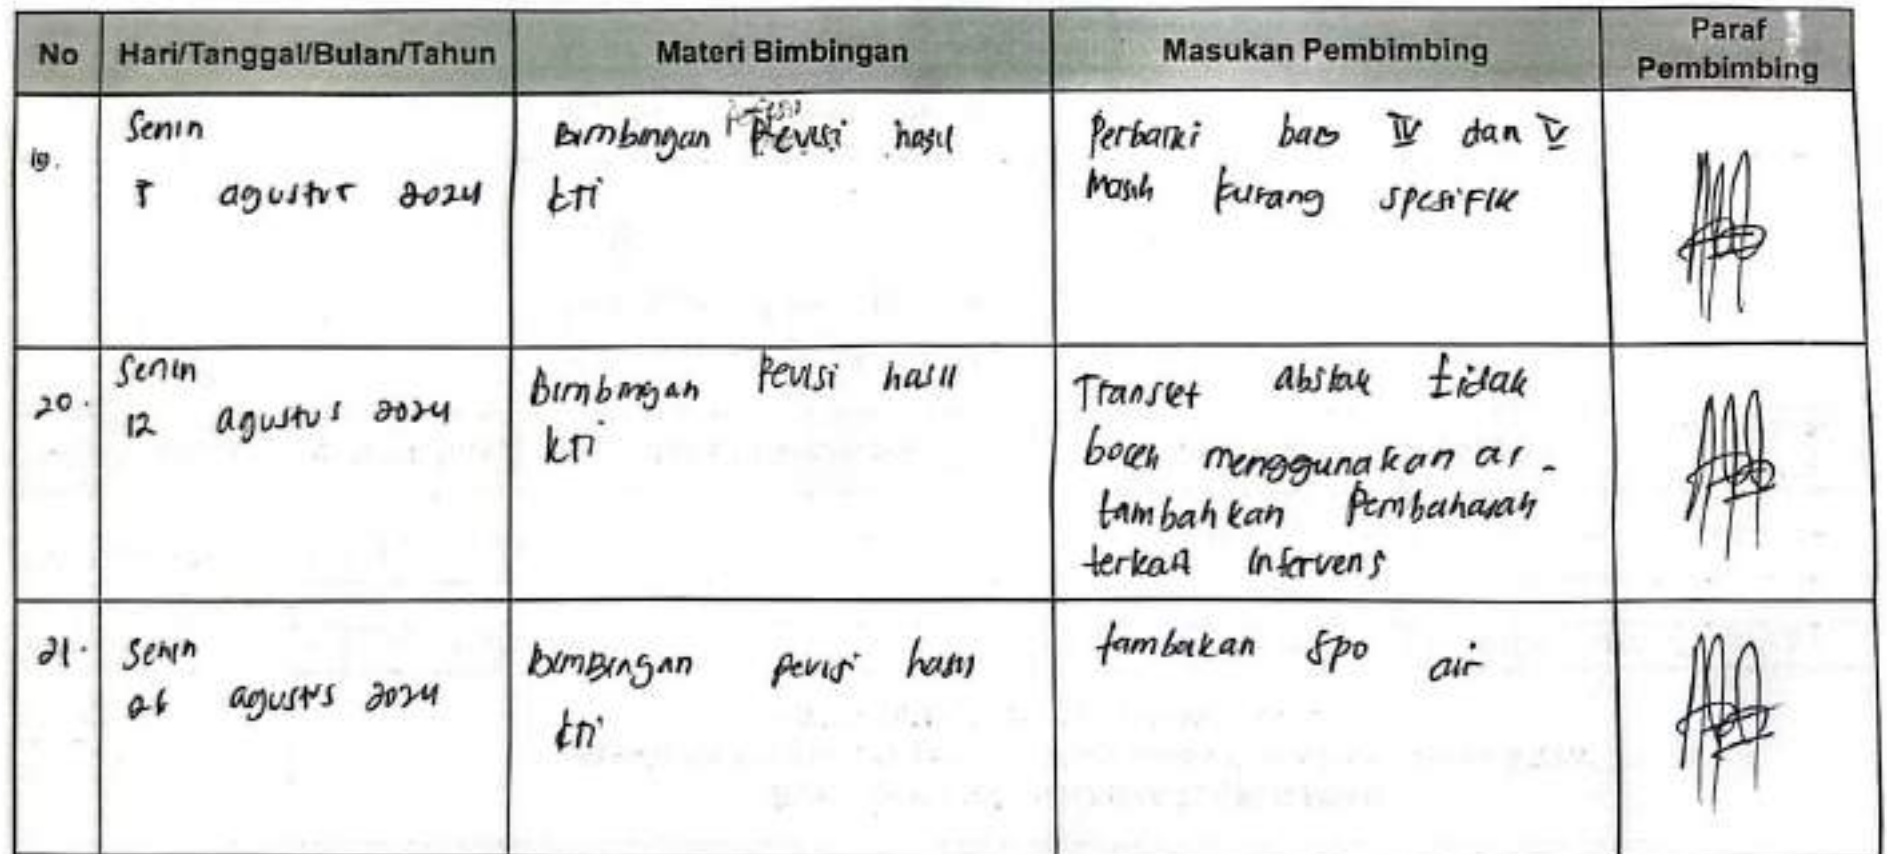 No Hari/Tanggal/Bulan/Tahun Materi Bimbingan Masukan Pembimbing Paraf Pembimbing
19. Senin
5 agustus 2024
Bimbingan Revisi hasil
kti
Perbaiki bab IV dan V
Masih kurang spesifik
20. Senin
12 agustus 2024
Bimbingan Revisi hasil
kti
Translet abstak tidak
boleh menggunakan ai -
tambahkan Pembahasan
terkait intervens
21. Senin
26 agustus 2024
bimbingan revisi hasil
kti
tambakan spo air